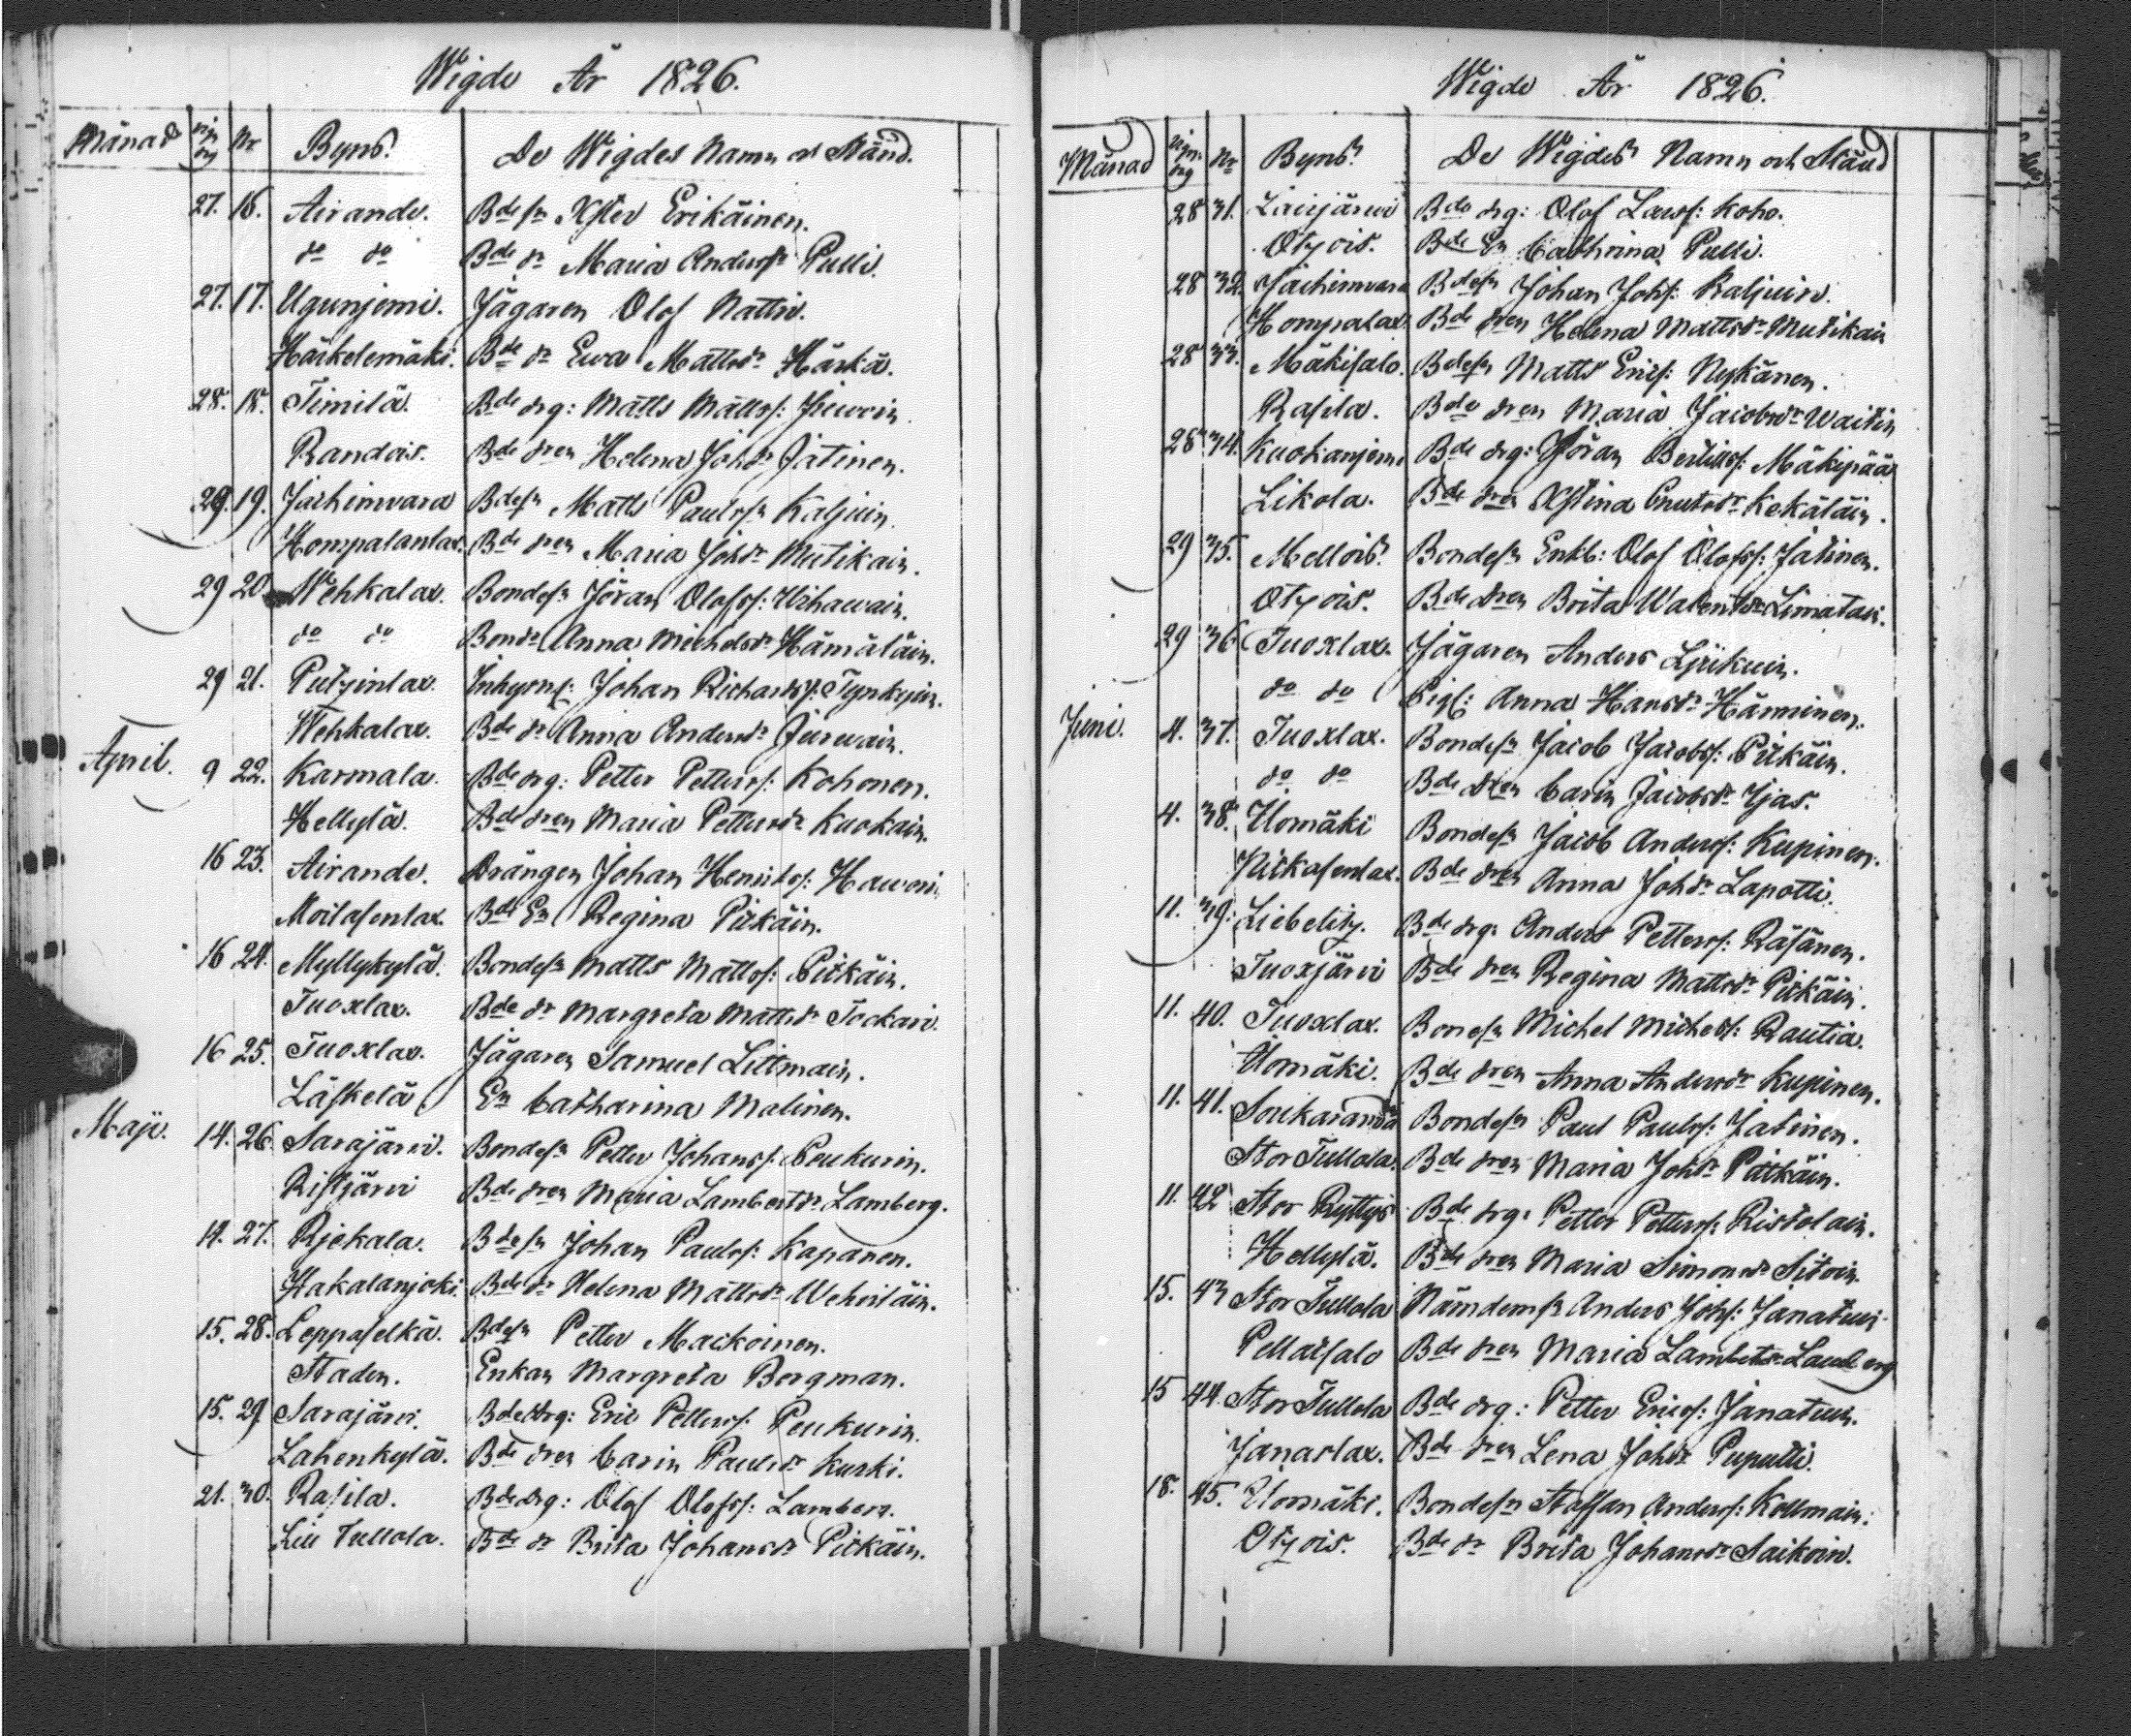 Wigde År 1826.
Månad Nr Byns. De Wigdes Namn och Stånd.
27. 16. Airande. Bdesn Xster Erikäinen.
do do Bde dr Maria Andersdr Pulli.
27. 17. Ugunjemi. Jägaren Olof Nattiv.
Härkelemäki. Bde dr Ewa Mattsdr Härkä.
28. 18. Timilä. Bde drg: Matts Mattss:
Randois. Bde dren Helena Johsdr Jatinen.
29. 19. Jachimvara Bdesn Matts Paulssn Kaljuin.
Hompalanlax. Bde dren Maria Johsdr Mutikain.
29 20. Wehkalax. Bondesn Jöran Olofss: Wihawain.
do do Bondr Anna Michelsdr Hämäläin.
29 21. Putzinlax. Inhysns: Johan Richardss: Tynkyin.
Wehkalax. Bde dr Anna Andersdr
April. 9 22. Karmala. Bde drg: Petter Petterss: Kohonen.
Hellylä. Bde dren Maria Pettersdr Kuokain.
16 23. Airande. Drängen Johan Henrikss: Hawoni.
Moilasenlax. Bde En Regina Pitkäin.
16 24. Myllykylä. Bondesn Matts Mattss: Pitkäin.
Tuoxlax. Bde dr Margreta Mattsdr Tockari.
16 25. Tuoxlax. Jägaren Samuel Littmain.
Läskelä En Catharina Malinen.
Maji. 14. 26. Sarajärvi. Bondesn Petter Johanss: Peukurin.
Ristjärvi Bde dren Maria Lambertsdr Lamberg.
14. 27. Rjekala. Bdesn Johan Paulss: Kapanen.
Hakalanjoki. Bde dr Helena Mattsdr Wehviläin.
15. 28. Leppäselkä. Bdesn Petter Mackoinen.
Staden. Enkan Margreta Bergman.
15. 29 Sarajärvi. Bde drg: Eric Petterss: Peukurin.
Lahenkylä. Bde dren Carin Paulsdr Kurki.
21. 30. Rasila. Bde drg: Olof Olofss: Lamberg.
Lill Tullola. Bde dr Brita Johansdr Pitkäin.
Wigde År 1826.
Månad Nr Byns De Wigdes Namn och Stånd
28 31. Lavijärvi Bde drg: Olof Larss: Koho.
Otzois. Bde En Cathrina Pulli.
28 32. Jachimvara Bdesn Johan Johss: Kaljuin.
Hompalax. Bde dren Helena Mattsdr Mutikain
28 33. Mäkisalo. Bdesn Matts Erics: Nykänen.
Rasila. Bde dren Maria Jacobsdr Waitin
28 34. Kuokanjemi Bde drg: Jöran Bertillss: Mäkipää
Likola. Bde dren Xstina Cnutsdr Kekäläin.
29 35. Mellois Bondesn Enkl: Olof Olofss: Jatinen.
Otzois. Bde dren Brita Walentsdr Limatain.
29 36. Tuoxlax. Jägaren Anders
do do Pig: Anna Hansdr Hänninen.
Juni. 4. 37. Tuoxlax. Bondesn Jacob Jacobss: Pitkäin.
do do Bde dren Carin Jacobsdr Ijas.
4. 38. Uomäki Bondesn Jacob Anderss: Kupinen.
Pitkasenlax. Bde dren Anna Johsdr Lapotti.
11. 39. Liebelitz. Bde drg: Anders Petterss: Räsänen.
Tuoxjärvi Bde dren Regina Mattsdr Pitkäin.
11. 40. Tuoxlax. Bondesn Michel Michelss: Rautia.
Uomäki. Bde dren Anna Andersdr Kupinen.
11. 41. Soukaranda Bondesn Paul Paulss: Jatinen.
Stor Tullola. Bde dren Maria Johsdr Pitkäin.
11. 42 Stor Ryttys Bde drg: Petter Petterss: Ristolain.
Hellylä. Bde dren Maria Simonsdr Sitoin.
15. 43 Stor Tullola Nämdemsn Anders Johss: Janatuin.
Pellaisalo Bde dren Maria Lambertsdr Lamberg
15 44. Stor Tullola Bde drg: Petter Ericss: Janatuin.
Janaslax. Bde dren Lena Johsdr Puputti.
18. 45. Uomäki. Bondesn Staffan Anderss: Kollmain.
Otzois. Bde dr Brita Johansdr Saikoin.